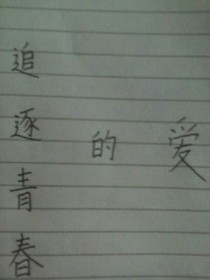 追逐青春
的
爱